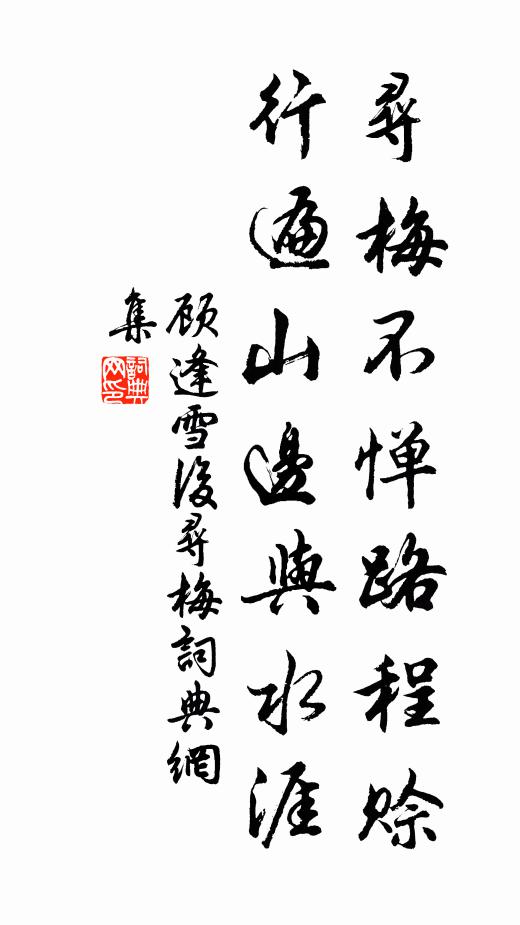 尋梅不惮路程赊
行遍山邊與水涯
顾逢雪後尋梅詞典網
集
詞典
网印